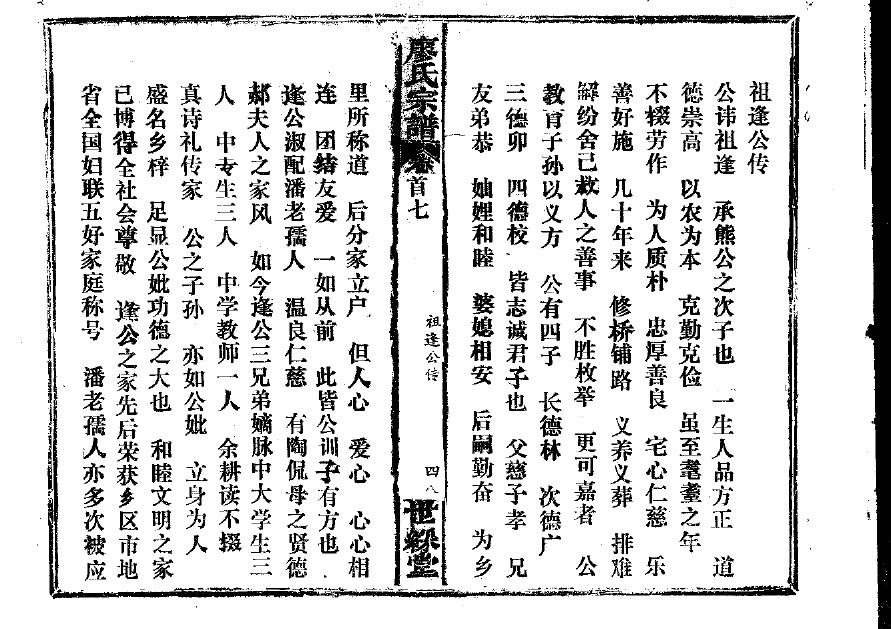 祖逢公传
公讳祖逢 承熊公之次子也 一生人品方正 道
德崇高 以农为本 克勤克俭 虽至耄耋之年
不辍劳作 为人质朴 忠厚善良 宅心仁慈 乐
善好施 几十年来 修桥铺路 义养义葬 排难
解纷舍己救人之善事 不胜枚举 更可嘉者 公
教育子孙以义方 公有四子 长德林 次德广
三德卯 四德校 皆志诚君子也 父慈子孝 兄
友弟恭 妯娌和睦 婆媳相安 后嗣勤奋 为乡
廖氏宗譜
卷首七
祖逢公传
四八
世綵堂
里所称道 后分家立户 但人心 爱心 心心相
连 团结友爱 一如从前 此皆公训子有方也
逢公淑配潘老孺人 温良仁慈 有陶侃母之贤德
郝夫人之家风 如今逢公三兄弟嫡脉中大学生三
人 中专生三人 中学教师一人 余耕读不辍
真诗礼传家 公之子孙 亦如公妣 立身为人
盛名乡梓 足显公妣功德之大也 和睦文明之家
已博得全社会尊敬 逢公之家先后荣获乡区市地
省全国妇联五好家庭称号 潘老孺人亦多次被应